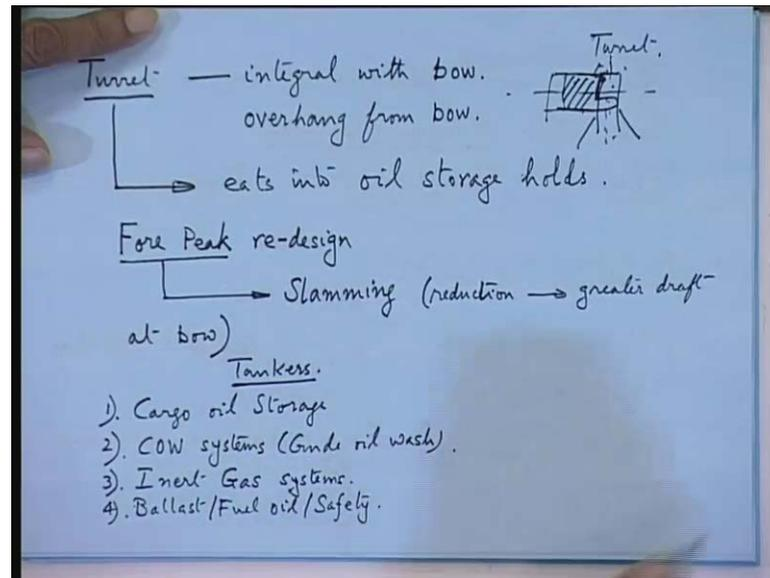 Turret.
Turret — integral with bow.
overhang from bow.
→ eats into oil storage holds.
Fore Peak re-design
→ Slamming (reduction → greater draft
at bow)
Tankers.
1). Cargo oil Storage
2). COW systems (Crude oil wash).
3). Inert Gas systems.
4). Ballast/Fuel oil/Safety.